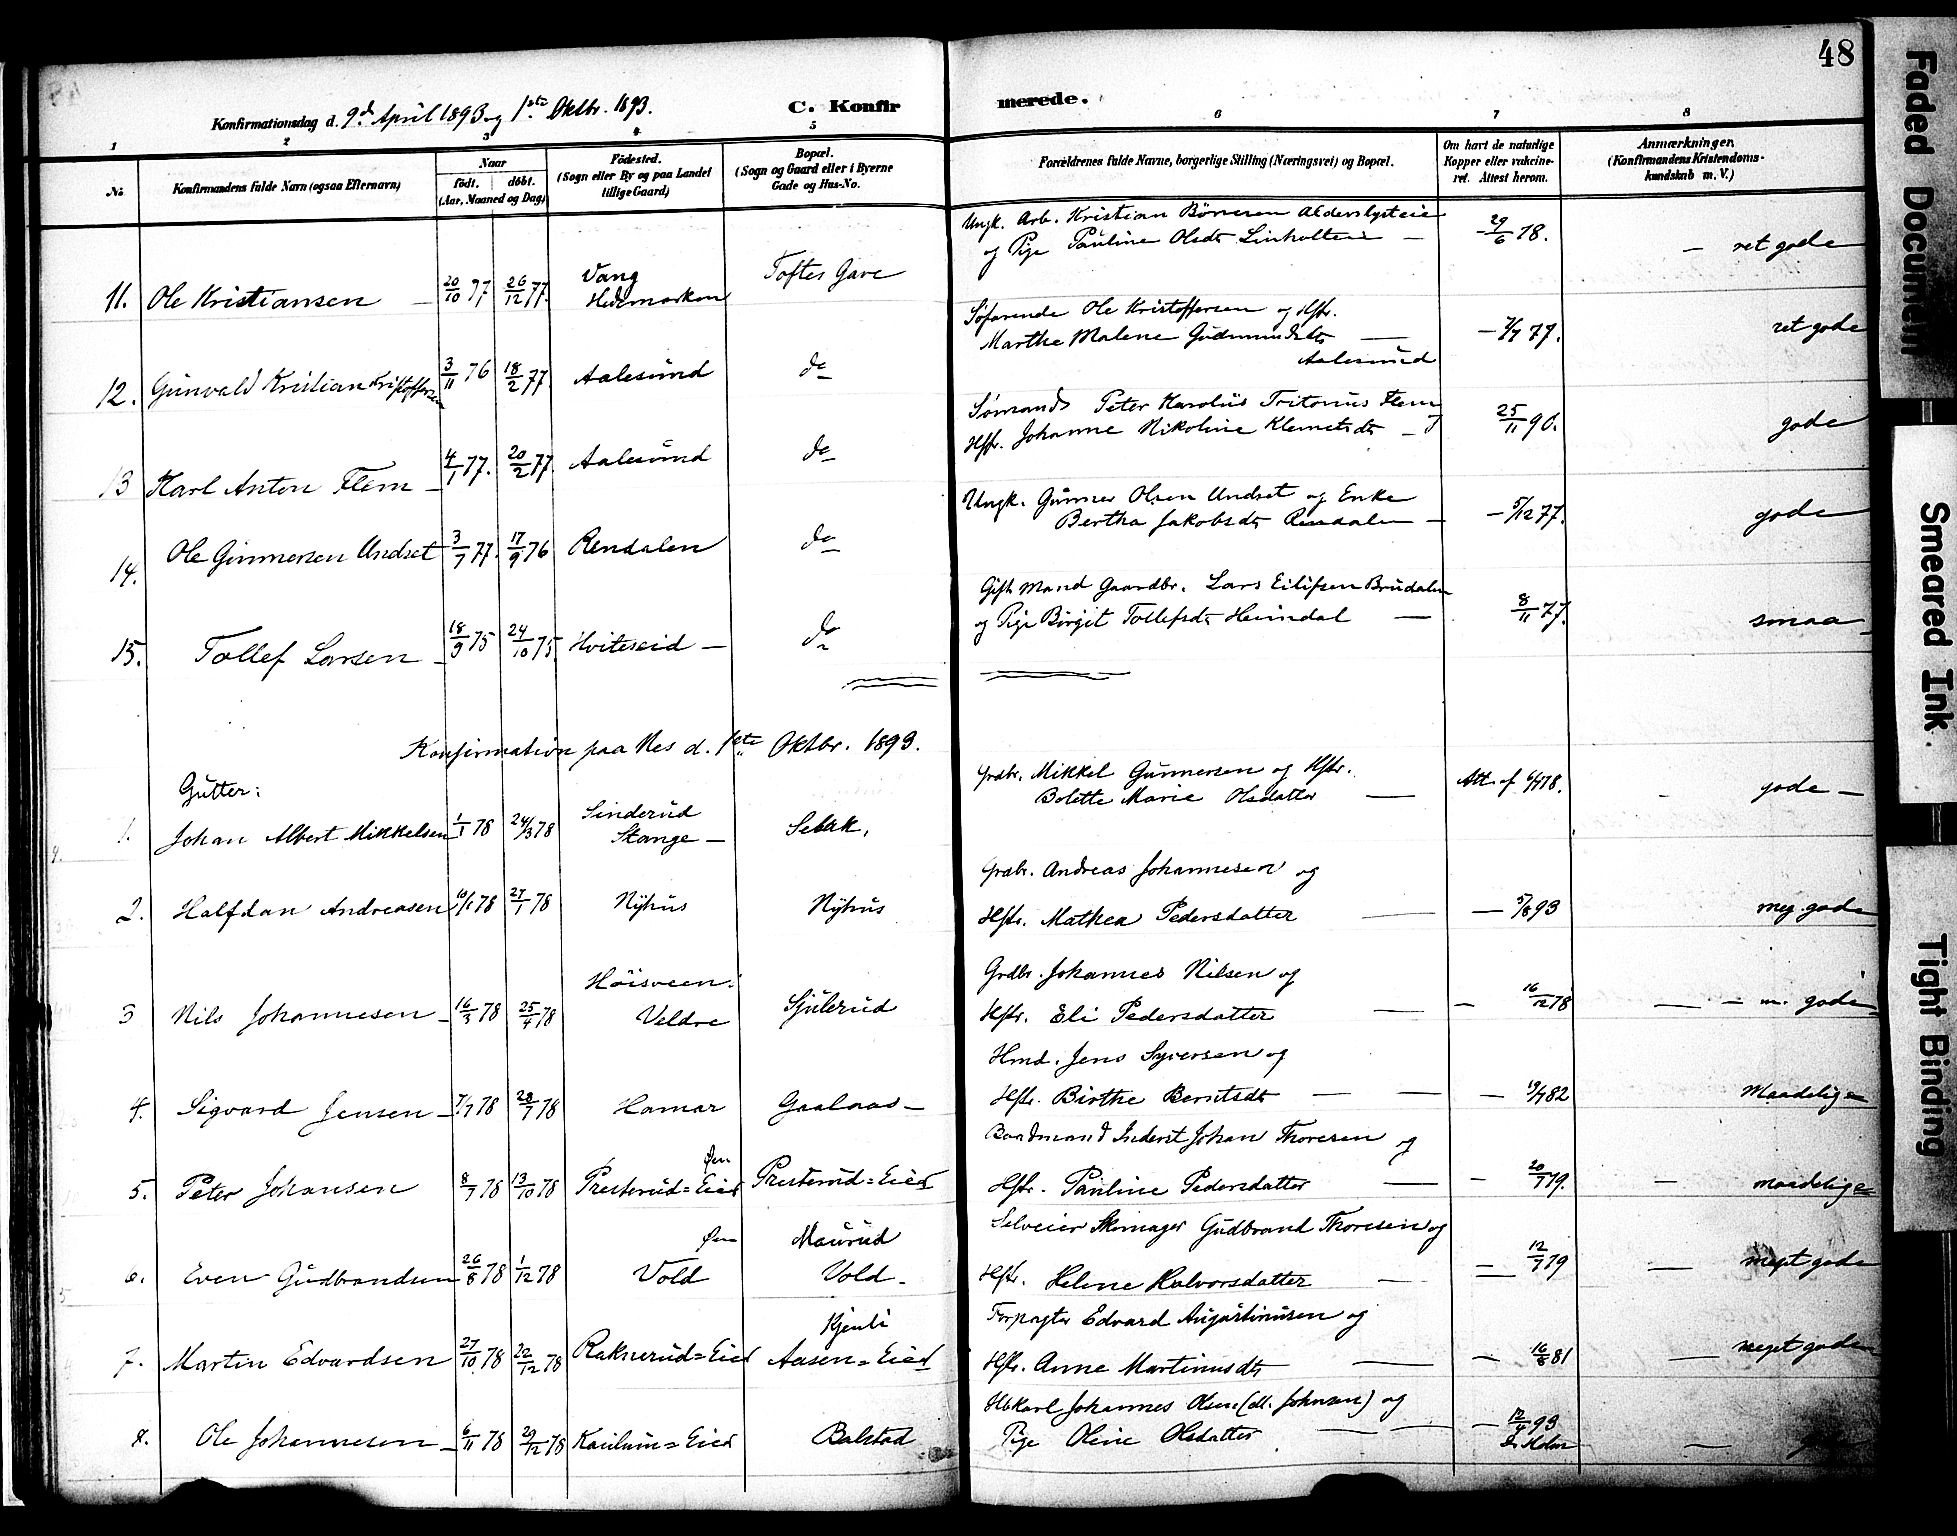 48
Konfirmationsdag d. 9d April 1893 og 1ste Oktbr. 1893.
C. Konfirmerede.
1 2 3 4 5 6 7 8
No
Konfirmandens fulde Navn (ogsaa Efternavn)
Naar
født. døbt.
(Aar, Maaned og Dag)
Fødested.
(Sogn eller By og paa Landet
tillige Gaard)
Bopæl.
(Sogn og Gaard eller i Byerne
Gade og Hus-No.
Forældrenes fulde Navne, borgerlige Stilling (Næringsvei) og Bopæl.
Om havt de naturlige
Kopper eller vakcine-
ret. Attest herom.
Anmærkninger.
(Konfirmandens Kristendoms-
kundskab m. V.)
11. Ole Kristiansen 20/10 77 26/12 77 Vang Hedemarken Toftes Gave
Ungk. Arb. Kristian Børresen Alderslysteie
og Pige Pauline Olsdtr Linholteie — 29/6 78. — ret gode
12. Gunvald Kristian Kristoffersen 3/11 76 18/2 77 Aalesund do
Søfarende Ole Kristoffersen og Hstr.
Marthe Malene Gudmundsdtr — Aalesund — 7/7 77. ret gode
13 Karl Anton Flem 4/1 77. 20/2 77 Aalesund do
Sømand Peter Karolius Tritonius Flem og
Hstr. Johanne Nikoline Klemetsdtr — 25/11 90. gode
14. Ole Gunnersen Undset 3/7 77. 17/9 76 Rendalen do
Ungk. Gunner Olsen Undset og Enke
Bertha Jakobsdtr Rendalen — — 5/12 77. gode
15. Tollef Larsen 18/9 75 24/10 75 Hviteseid — do
Gift Mand Gaardbr. Lars Eilifsen Brudalen
og Pige Birgit Tollefsdtr Heimdal — 8/11 77. smaa
Konfirmation paa Nes d. 1ste Oktbr. 1893.
Gutter:
1. Johan Albert Mikkelsen 1/1 78 24/3 78 Sinderud Stange — Sebak.
Grdbr. Mikkel Gunnersen og Hstr.
Bolette Marie Olsdatter — Att. af 6/7 78. gode —
2. Halfdan Andreasen 10/1 78 27/1 78 Nyhus Nyhus
Grdbr. Andreas Johannesen og
Hstr. Mathea Pedersdatter — — 5/8 93 meg. gode
3 Nils Johannesen 16/3 78 25/4 78 Høisveen: Veldre Sjulerud
Grdbr. Johannes Nilsen og
Hstr. Eli Pedersdatter — — 16/12 78 — m. gode
4. Sigvard Jensen 7/7 78 28/7 78 Hamar Gaalaas —
Hmd. Jens Syversen og
Hstr. Birthe Berntsdtr — — 19/7 82 Maadelige
5. Peter Johansen 8/7 78 13/10 78 Presterud = Eied Øen Presterud = Eied
Baadmand Inderst Johan Thoresen og
Hstr. Pauline Pedersdatter — — 20/7 79. — maadelige
6. Even Gudbrandsen 26/8 78 1/12 78 Øen Vold Maurud Vold —
Selveier Skomager Gudbrand Thoresen og
Hstr. Helene Halvorsdatter — — 12/7 79 — meget gode
7. Martin Edvardsen 27/10 78 22/12 78 Raknerud = Eied Kjenli Aasen = Eied
Forpagter Edvard Augustinusen og
Hstr. Anne Martinusdtr — — 16/8 81 — meget gode
8. Ole Johannesen 6/11 78 29/12 78 Kaulum = Eied Balstad
Ukarl Johannes Olsen (ell. Johnsen) og
Pige Oline Olsdatter — — 12/4 93 Dr Holm —
Faded Document
Smeared Ink.
Tight Binding